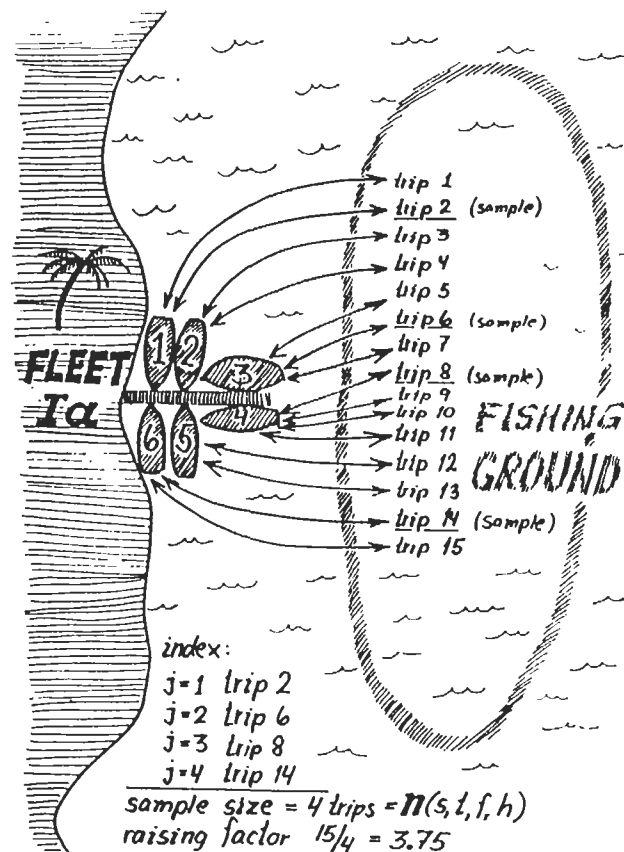 trip 1
trip 2 (sample)
trip 3
trip 4
trip 5
trip 6 (sample)
trip 7
trip 8 (sample)
trip 9
trip 10
trip 11
trip 12
trip 13
trip 14 (sample)
trip 15
FISHING
GROUND
FLEET
Iα
1
2
3
4
5
6
index:
j=1 trip 2
j=2 trip 6
j=3 trip 8
j=4 trip 14
sample size = 4 trips = n(s,t,f,h)
raising factor 15/4 = 3.75